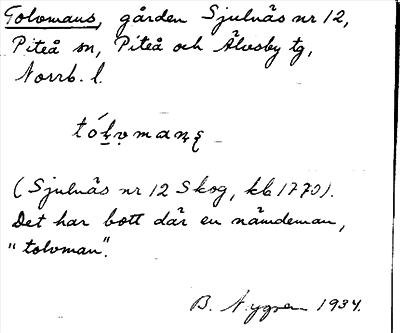 Tolvmans, gården Sjulnäs nr 12,
Piteå sn, Piteå och Älvsby tg,
Norrb. l.
(Sjulnäs nr 12 Skog, kb 1770).
Det har bott där en nämdeman,
"tolvman".
B. Nygren 1934.